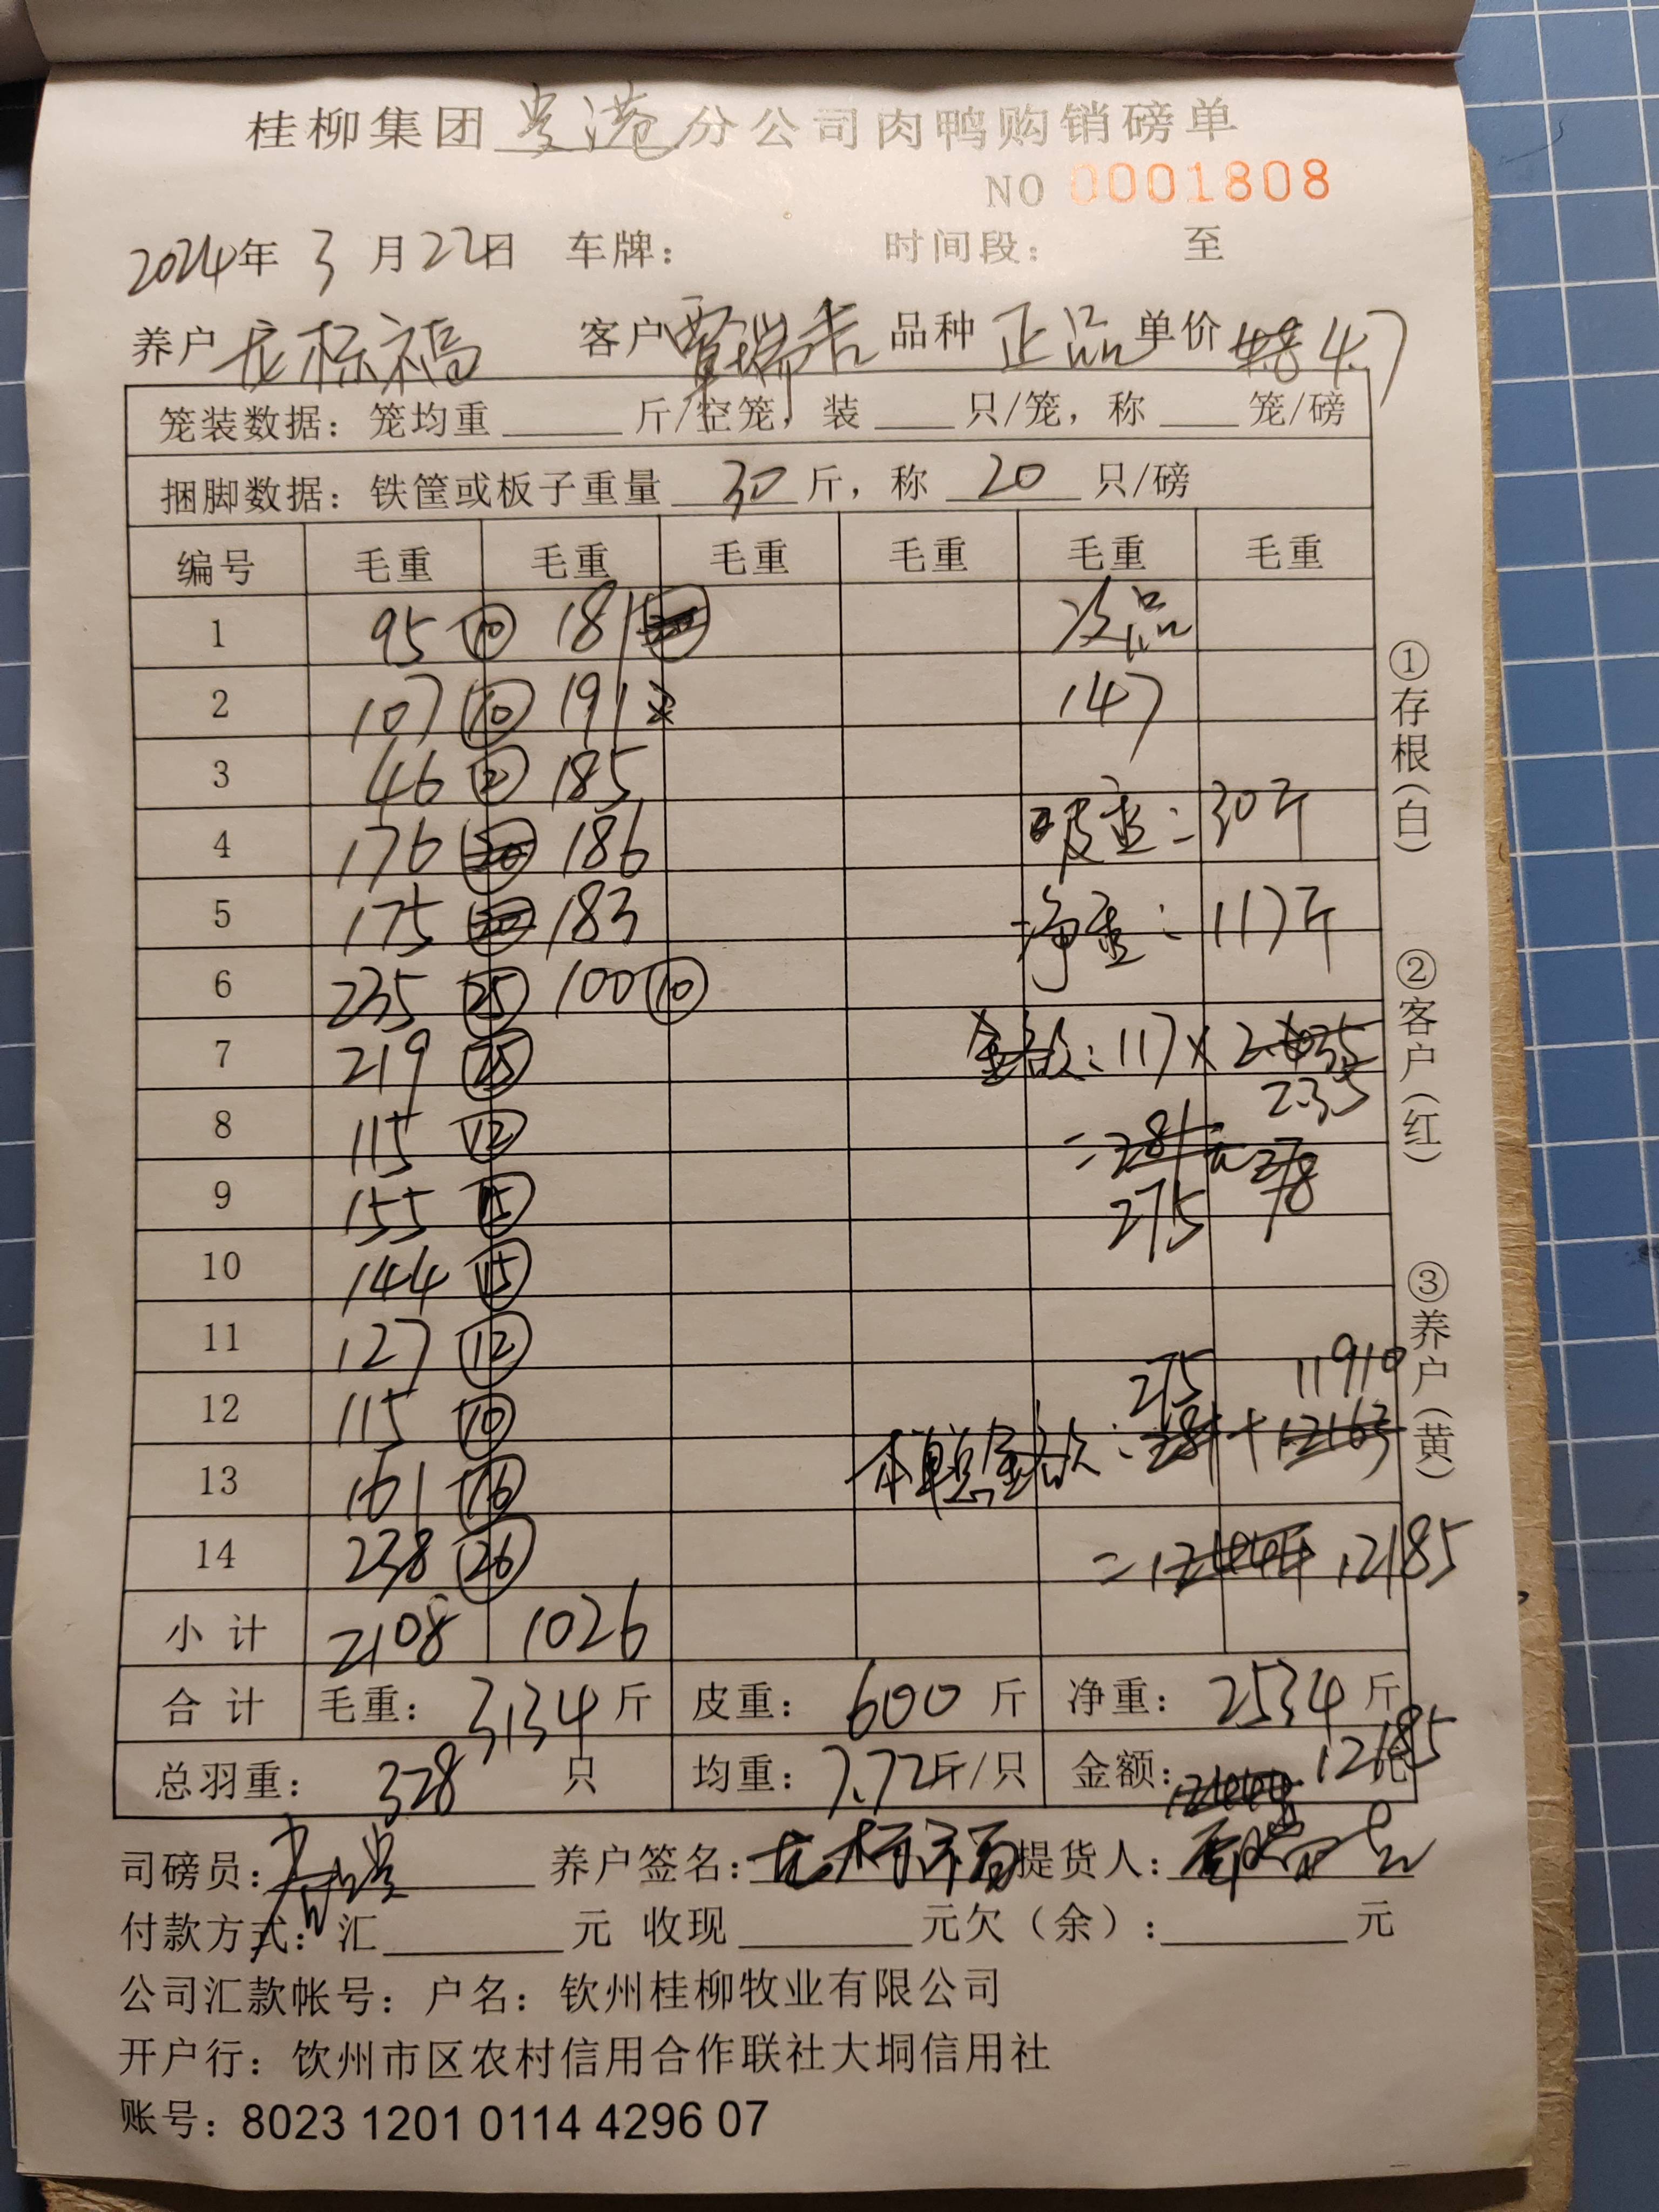 桂柳集团贵港分公司肉鸭购销磅单
NO 0001808
2024年 3 月 22日 车牌： 时间段： 至
养户 标福 客户 贾瑞吉 品种 正品 单价 4.8 4.7
笼装数据：笼均重 斤/空笼，装 只/笼，称 笼/磅
捆脚数据：铁筐或板子重量 30 斤，称 20 只/磅
编号 毛重 毛重 毛重 毛重 毛重 毛重
1 95 ⑩ 181 次品
2 107 ⑩ 191 147
3 46 185
4 176 ⑳ 186 皮重：30斤
5 175 ⑳ 183 净重：117斤
6 235 ㉕ 100 ⑩
7 219 ㉕ 金额：117×
2.35
8 115 ⑫ =281元 278
9 155 ⑮ 275
10 144 ⑮
11 127 ⑫
275 11910
12 115 ⑩
本单总金额：281+12163
13 161 ⑯
14 238 ㉖ = 12185
小计 2108 1026
合计 毛重：3134 斤 皮重：600 斤 净重：2534 斤
总羽重：328 只 均重：7.72斤/只 金额：12185 元
司磅员： 养户签名： 提货人：
付款方式：汇 元 收现 元欠（余）： 元
公司汇款帐号：户名：钦州桂柳牧业有限公司
开户行：饮州市区农村信用合作联社大垌信用社
账号：8023 1201 0114 4296 07
①存根（白）
②客户（红）
③养户（黄）